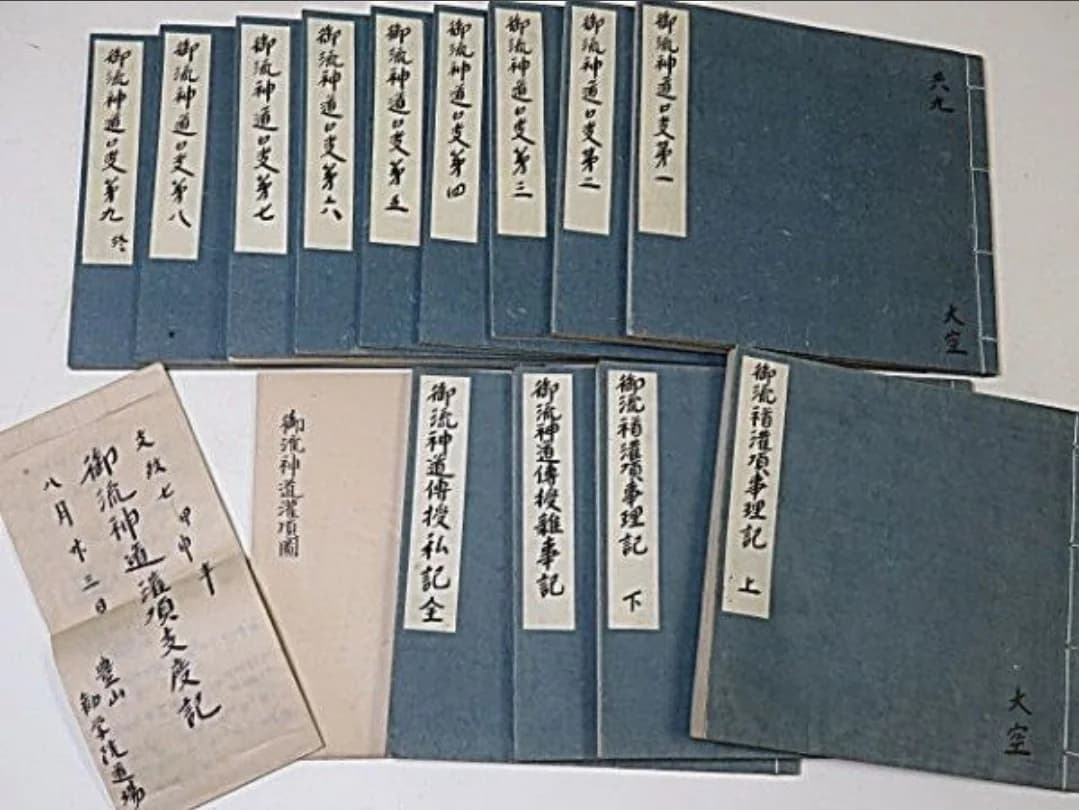 共九
大空
御流神道口决第一
御流神道口决第二
御流神道口决第三
御流神道口决第四
御流神道口决第五
御流神道口决第六
御流神道口决第七
御流神道口决第八
御流神道口决第九 終
大空
御流灌頂事理記 上
御流灌頂事理記 下
御流神道傳授雜事記
御流神道傳授私記全
御流神道灌頂圖
文政七甲申年
御流神道灌頂支度記
八月廿三日
豊山
勧学院道場